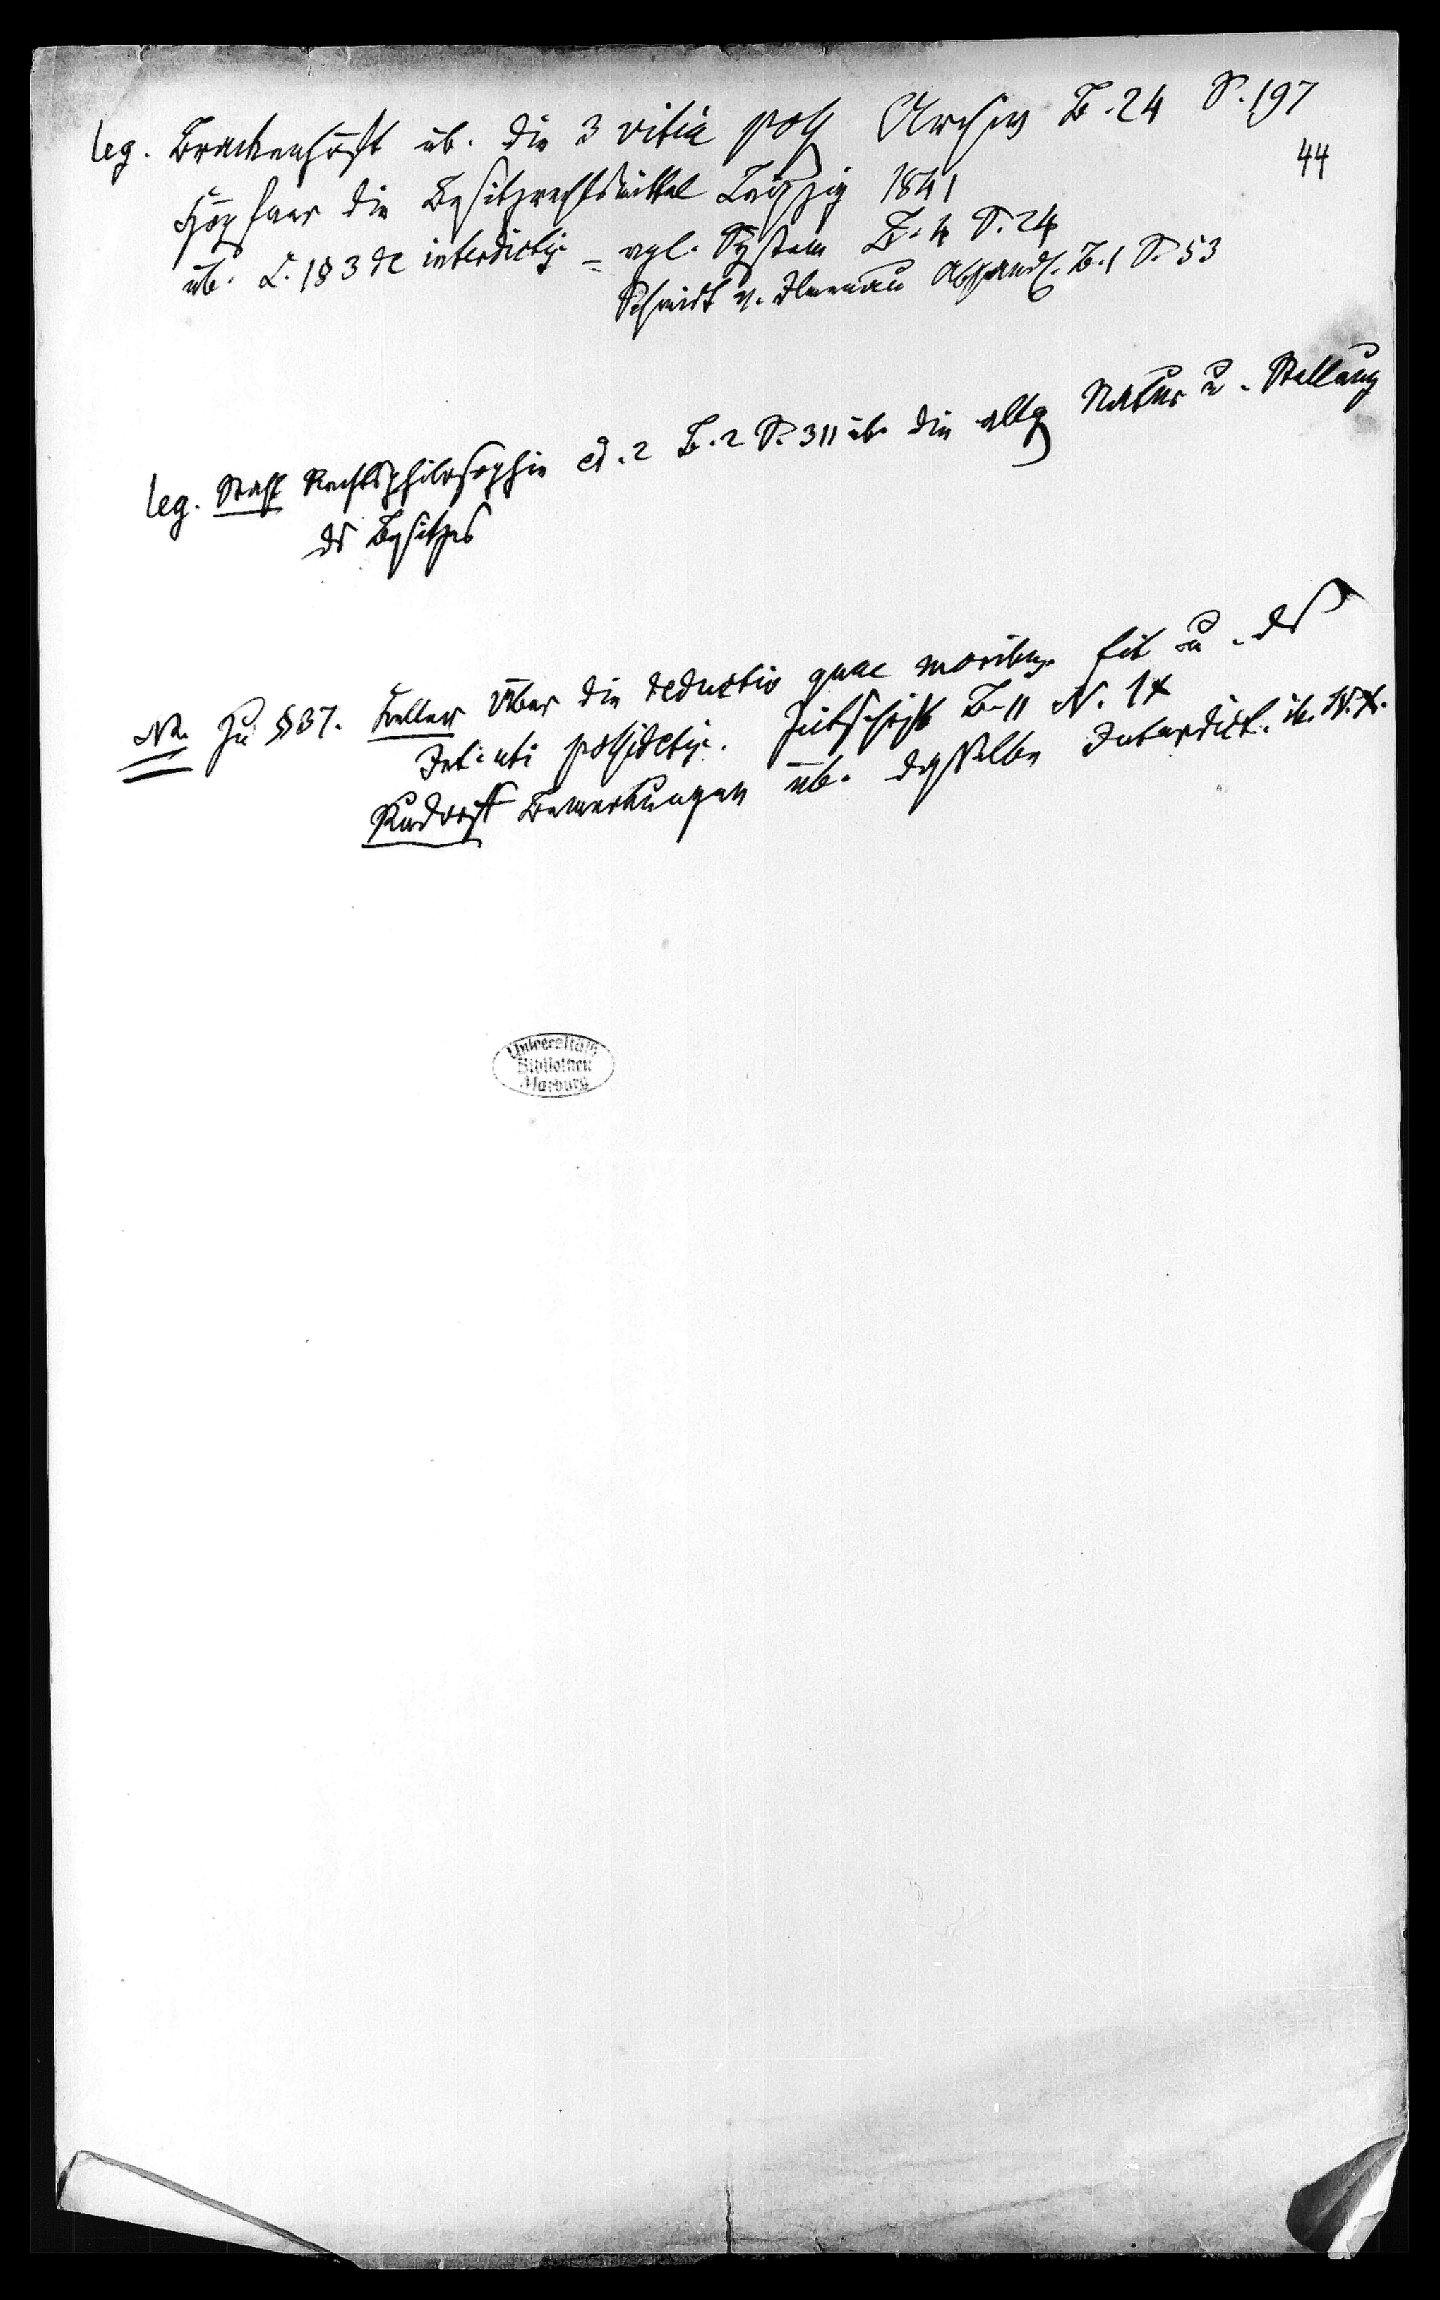 leg. Brackenhöft üb. die 3 vitia poss Archiv B. 24 S. 197
44
Höpfner die Besitzrechtsmittel Leipzig 1841
üb. L. 1 § 3 de interdictis = vgl. System B. 4 S. 24
Schmidt v. Ilmenau Abhandl. B. 1 S. 53
leg. Stahl Rechtsphilosophie ed. 2 B. 2 S. 311 üb. die allg Natur u. Stellung
ds Besitzes
Na. Zu § 37. Keller Über die deductio quae moribus fit u. ds
Int. uti possidetis. Zeitschrift B. 11 N.
Rudorff Bemerkungen üb. dasselbe Interdict. ib. N.
Universitäts
Bibliothek
Marburg